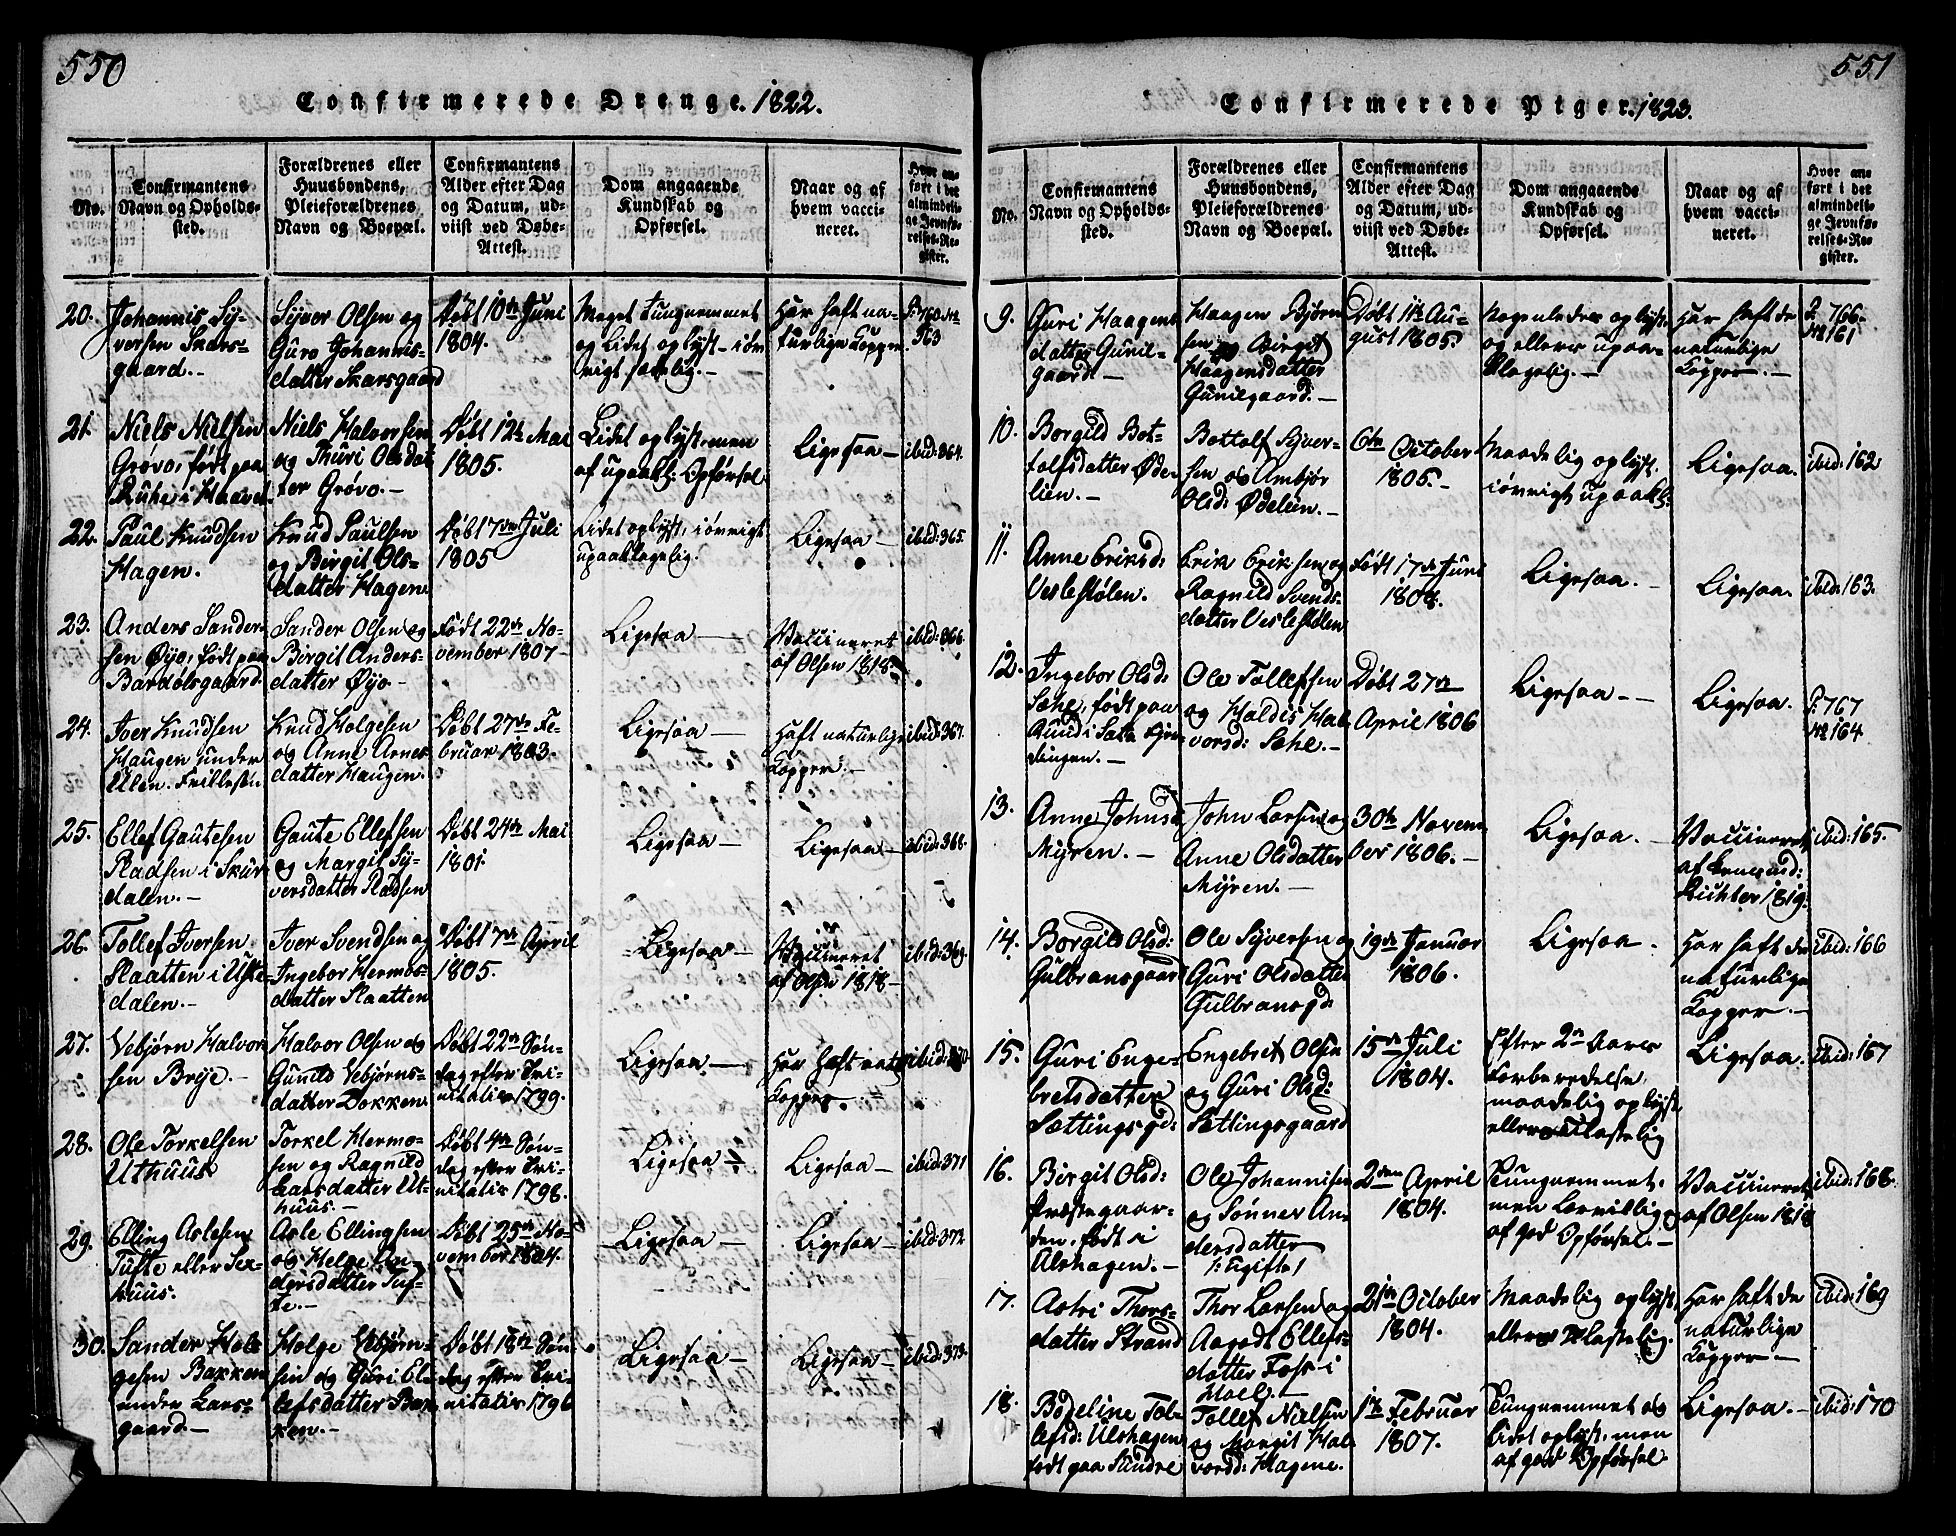 550
Confirmerede Drenge. 1822.
No.
Confirmantens
Navn og Opholds-
sted.
Forældrenes eller
Huusbondens,
Pleieforældrenes
Navn og Boepæl.
Confirmantens
Alder efter Dag
og Datum, ud-
viist ved Døbe-
Attest.
Dom angaaende
Kundskab og
Opførsel.
Naar og af
hvem vacci-
neret.
Hvor an-
ført i det
almindeli-
ge Jevnfø-
relses-Re-
gister.
20.
Johannis Sy-
versen Skars-
gaard.-
Syver Olsen og
Guro Johannis-
datter Skarsgaard
Døbt 10de Juni
1804.
Meget tungnemmet
og Lidet oplyst- iøv-
rigt sædelig.-
Har haft na-
turlige Kopper.
P. 760 No
363
21.
Niels Nielsen
Grøvo, født paa
Ruhe i Haavel
Niels Halvorsen
og Thuri Olsdat
ter Grøvo.-
Døbt 12te Mai
1805.
Lidet oplyst, men
af upaakl: Opførsel
Ligesaa-
ibid: 364.
22.
Paul Knudsen
Hagen.
Knud Paulsen
og Birgit Ols-
datter Hagen
Døbt 7de Juli
1805
Lidet oplyst, iøvrigt
upaaklagelig.
Ligesaa-
ibid: 365.
23.
Anders Sander-
sen Øyo, født paa
Bardolsgaard
Sander Olsen og
Birgit Anders-
datter Øyo-
Født 22de No-
vember 1807-
Ligesaa-
Vaccineret
af Olsen 1818.
ibid: 366.
24.
Iver Knudsen
Haugen under
Ulen. Frillesøn
Knud Holgesen
og Anne Arnes
datter Haugen.
Døbt 27de Fe-
bruar 1803.
Ligesaa-
Haft naturlige
Kopper.-
ibid: 367.
25.
Ellef Gautesen
Pladsen i Skur-
dalen.-
Gaute Ellefsen
og Margit Sy-
versdatter Pladsen
Døbt 24de Mai
1801
Ligesaa-
Ligesaa-
ibid: 368.
26.
Tollef Iversen
Slaatten i Uste
dalen.-
Iver Svendsen og
Ingebor Hermos-
datter Slaatten
Døbt 7de April
1805.
Ligesaa-
Vaccineret
af Olsen 1818-
ibid: 369.
27.
Vebjørn Halvor
sen Brye.-
Halvor Olsen og
Gunild Vebjørns-
datter Dokken.
Døbt 22de Søn-
dag efter Tri-
nitatis 1799.
Ligesaa.-
Har haft nat:
Kopper.
ibid: 370
28.
Ole Torkelsen
Uthuus
Torkel Hermo-
sen og Ragnild
Larsdatter Ut-
huus.-
Døbt 4de Søn-
dag efter Tri-
nitatis 1798.
Ligesaa-
Ligesaa-
ibid: 371
29.
Elling Aslesen
Tufte eller Sex-
huus.
Asle Ellingsen
og Helge An-
dersdatter Tuf-
te.-
Døbt 25de No-
vember 1804.
Ligesaa-
Ligesaa-
ibid: 372
30.
Sander Hol-
gesen Bakken
under Lars-
gaard-
Holge Vebjørn-
sen og Guri El-
lefsdatter Bak
ken.-
Døbt 18de Søn
dag efter Tri-
nitatis 1796
Ligesaa-
Ligesaa-
ibid: 373.
551
Confirmerede Piger. 1823.
No.
Confirmantens
Navn og Opholds-
sted.
Forældrenes eller
Huusbondens,
Pleieforældrenes
Navn og Boepæl.
Confirmantens
Alder efter Dag
og Datum, ud-
viist ved Døbe-
Attest.
Dom angaaende
Kundskab og
Opførsel.
Naar og af
hvem vacci-
neret.
Hvor an-
ført i det
almindeli-
ge Jevnfø-
relses-Re-
gister.
9.
Guri Haagens
datter Gunil-
gaard.-
Haagen Bjørn
sen og Birgit
Haagensdatter
Gunilgaard.-
Døbt 11te Au-
gust 1805.
Nogenledes oplyst
og ellers upaa-
klagelig.-
Har haft de
naturlige
Kopper.-
P 766.
No 161
10.
Borgild Bot-
tolfsdatter Øde
lien.-
Bottolf Syver-
sen og Ambjør
Olsd: Ødelien.-
6te October
1805.-
Maadelig oplyst,
iøvrigt upaakl:
Ligesaa.
ibid: 162
11.
Anne Eriksd:
Veslestølen.
Erik Eriksen og
Ragnild Svends-
datter Veslestølen
Født 17de Juni
1808.
Ligesaa.-
Ligesaa.
ibid: 163.
12.
Ingebor Olsd:
Sehe, født paa
Rund i Sata
dingen.-
Ole Tollefsen
og Haldis Hal
vorsd: Sehe.-
Døbt 27de
April 1806
Ligesaa-
Ligesaa.
P. 767
No 164
13.
Anne Johnsd
Myren.-
John Larsen og
Anne Olsdatter
Myren.-
30te Novem
ber 1806.-
Ligesaa.
Vaccineret
af
Richter 1819.
ibid: 165.
14.
Borgild Olsd:
Gulbransgaard
Ole Syversen og
Guri Olsdatter
Gulbransgd:
19de Januar
1806.
Ligesaa.
Har haft de
naturlige
Kopper.-
ibid: 166
15.
Guri Enge-
bretsdatter
Sættingsgd:
Engebret Olsen
og Guri Olsd:
Sættingsgaard
15de Juli
1804.
Efter 2 Aars
Forberedelse,
maadelig oplyst,
ellers ulastelig
Ligesaa.
ibid: 167
16.
Birgit Olsd:
Præstegaar-
den, født i
Alshagen.-
Ole Johannisen
og Sønner An
dersdatter
/: Ugifte /
2den April
1804.
Tungnemmet,
men Lærvillig og
af god Opførsel.-
Vaccineret
af Olsen 1818
ibid: 168.
17.
Astri Thors-
datter Strand
Thor Larsen og
Aagodt Ellefs-
datter Foss i
Hoel.-
21de October
1804.
Maadelig oplyst,
ellers ulastelig.
Har haft de
naturlige
Kopper-
ibid: 169
18.
Bodeline Tol-
lefsd: Ulshagen
født paa Sundre
Tollef Nielsen
og Margit Hal
vorsd: Hagene.
1te Februar
1807.
Tungnemmet og
Lidet oplyst, men
af god Opførsel.
Ligesaa.-
ibid: 170